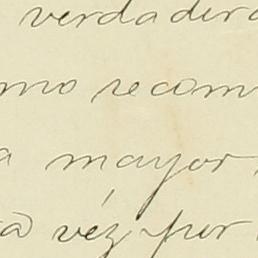 verdader
mo recom
a mayor
a véz por